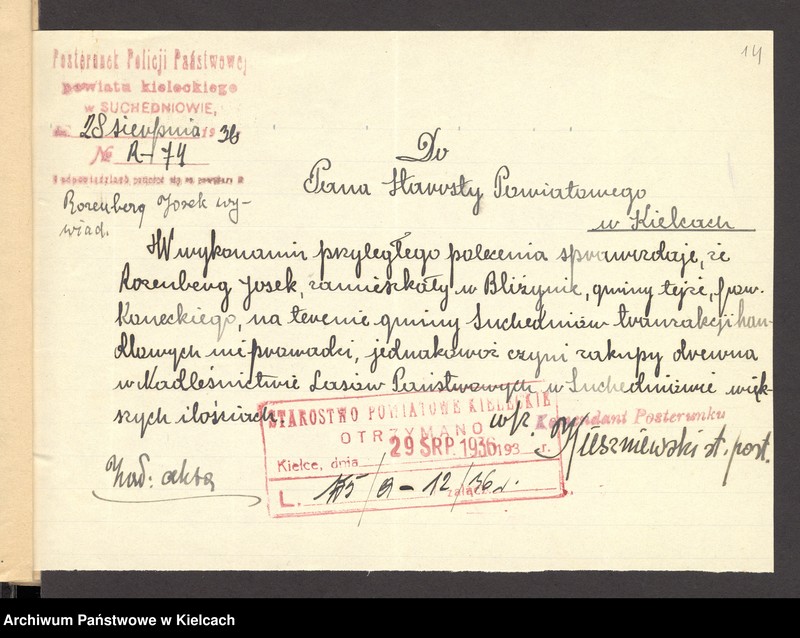 14
Posterunek Policji Państwowej
powiatu kieleckiego
w SUCHEDNIOWIE,
dn. 28 sierpnia 1936
№ A-74
W odpowiedziach powołać się na powyższy №
Rozenberg Josek wy-
wiad.
Do
Pana Starosty Powiatowego
w Kielcach
W wykonaniu przyległego polecenia sprawozdaję, że
Rozenberg Josek, zamieszkały w Bliżynie, gminy tejże, pow.
Koneckiego, na terenie gminy Suchedniów tranzakcji han-
dlowych nie prowadzi, jednakowoż czyni zakupy drewna
w Nadleśnictwie Lasów Państwowych w Suchedniowie więk-
szych ilościach.
STAROSTWO POWIATOWE KIELECKIE
OTRZYMANO
29 SRP. 1936
Kielce, dnia 193 r.
L. załącz.
wz. Komendant Posterunku
st. post.
Zał: akta
Archiwum Państwowe w Kielcach